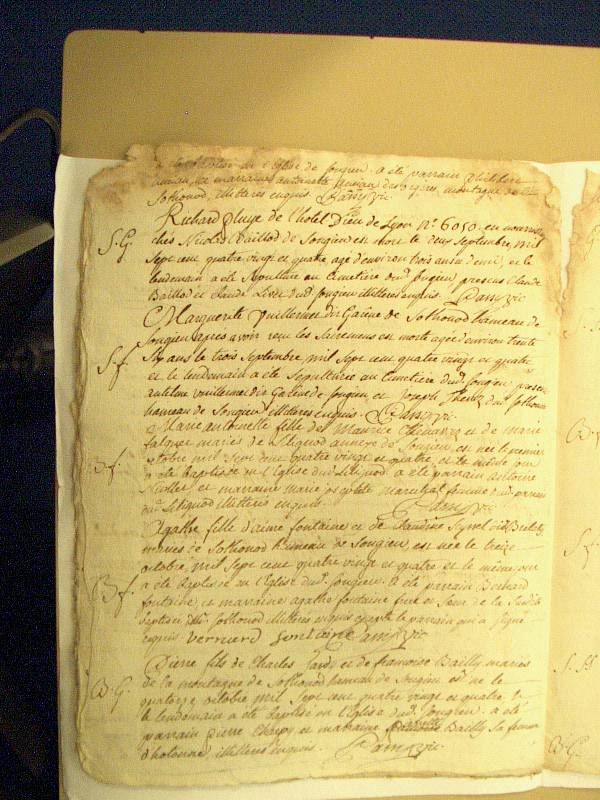 a été baptisé en l'Eglise de Songieu. a été parrain
et marraine antoinette des vignes, montagne de
Sothonod, illitérés enquis. Dam Vic
Richard Eluye de l'hotel Dieu de Lyon N.° 6050. en nourrice
S. G.
chés Nicolas Baillod de Songieu est mort le deux Septembre, mil
Sept cent quatre vingt et quatre agé d'environ trois ans et demi, et le
lendemain a été Sépulturé au Cimetière dud. Songieu, présens Claude
Baillod et Claude dud. Songieu illitérés enquis. Dam Vic
Marguerite Vuillermoz dit Gavene de Sothonod hameau de
Songieu après avoir reçu les Sacremens est morte agée d'environ trente
S. f.
Six ans le trois Septembre, mil Sept cent quatre vingt et quatre
et le lendemain a été Sépulturée au Cimetière dud. Songieu, présens
antelme vuillermoz dit Gavene de Songieu et Joseph du Sothonod
hameau de Songieu, illitérés enquis. Dam Vic
Marie antoinette fille de Maurice et de marie
mariés de Litignod annexe de Songieu, est née le premier
B. f.
octobre mil Sept cent quatre vingt et quatre, et le même jour
a été Baptisée en l'Eglise dud. Litignod a été parrain antoine
et marraine marie maréchal femme dud. parrain
du Litignod illitérés enquis. Dam Vic
Agathe fille d'aimé fontaine et de Claudine Seyvet
mariés de Sothonod hameau de Songieu, est née le treize
octobre, mil Sept cent quatre vingt et quatre et le même jour
B. f.
a été Baptisée en l'Eglise dud. Songieu. a été parrain Bernard
fontaine, et marraine agathe fontaine frère et Sœur de la Susdite
baptisée dud. Sothonod illitérés enquis excepté le parrain qui a Signé
enquis Bernard fontaine Dam Vic
Pierre fils de Charles Jandy et de françoise Bailly mariés
B. G.
de la montagne de Sothonod hameau de Songieu est né le
quatorze octobre mil Sept cent quatre vingt et quatre &
le lendemain a été baptisé en l'Eglise dud. Songieu. a été
parrain Pierre Charpy et marraine Bailly Sa femme
d'hotonne, illitérés enquis. Dam Vic